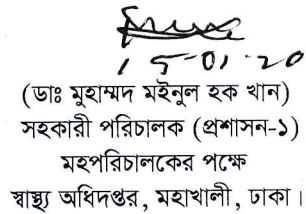 15-01-20
(ডাঃ মুহাম্মদ মইনুল হক খান)
সহকারী পরিচালক (প্রশাসন-১)
মহপরিচালকের পক্ষে
স্বাস্থ্য অধিদপ্তর, মহাখালী, ঢাকা।